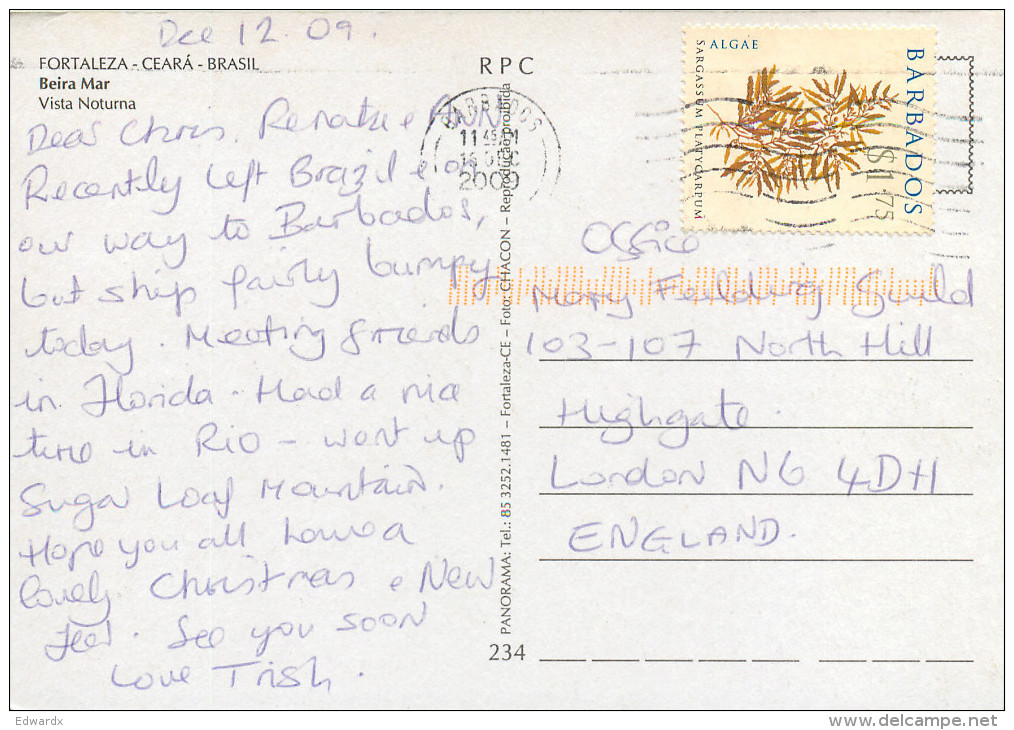 Dec 12. 09.
FORTALEZA - CEARÁ - BRASIL
Beira Mar
Vista Noturna
Dear Chris, Renate & Ann
Recently left Brazil & on
our way to Barbados,
but ship fairly bumpy
today. Meeting friends
in Florida. Had a nice
time in Rio - went up
Sugar Loaf Mountain.
Hope you all have a
lovely Christmas & New
Year. See you soon
Love Trish.
RPC
BARBADOS
11 45 AM
16 DEC
2009
PANORAMA: Tel.: 85 3252.1481 – Fortaleza-CE – Foto: CHACON – Reprodução proibida
234
ALGAE
SARGASSUM PLATYCARPUM
BARBADOS
$1.75
Office
Mary Feilding Guild
103-107 North Hill
Highgate.
London N6 4DH
ENGLAND.
Edwardx
www.delcampe.net